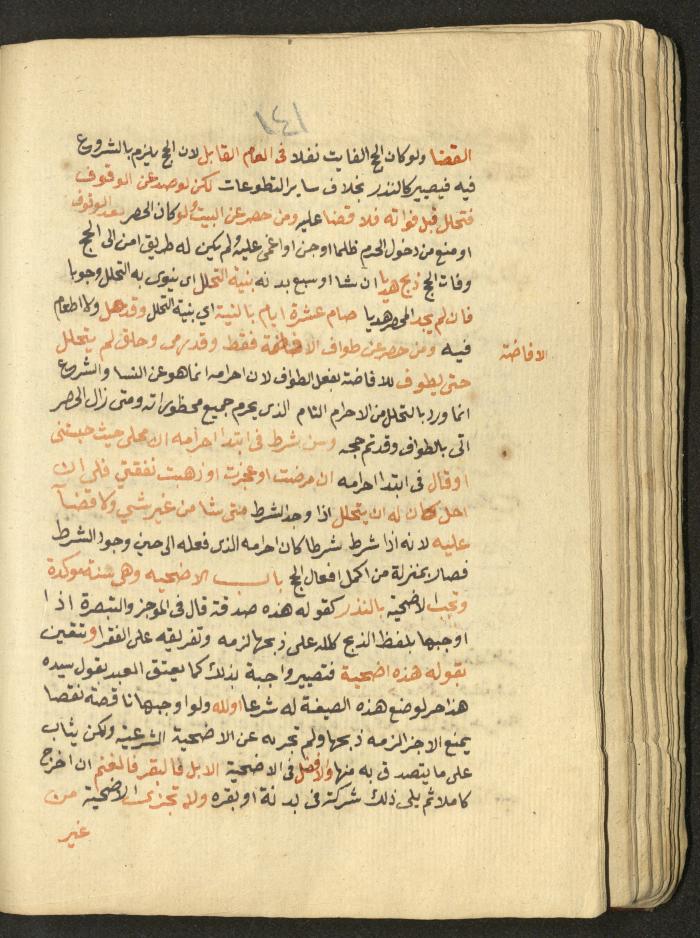 ١٤١
القضا ولو كان الحج الفايت نفلا فى العام القابل لان الحج يلزم بالشروع
فيه فيصير كالنذر بخلاف ساير التطوعات لكن لو صد عن الوقوف
فتحلل قبل فواته فلا قضا عليه ومن حصر عن البيت ولو كان الحصر بعد الوقوف
او منع من دخول الحرم ظلما او جن او اغمى عليه ولم يكن له طريق امن الى الحج
وفات الحج ذبح هديا ان شا او سبع بدنه بنية التحلل اى ينوى به التحلل وجوبا
فان لم يجد المحصر هديا صام عشرة ايام بالنية اي بنية التحلل وقد حل ولا اطعام
فيه ومن حصر عن طواف الافاضة فقط وقد رمى وحلق لم يتحلل
الافاضة
حتى يطوف للافاضة بفعل الطواف لان احرامه انما هو عن النسا والشروع
انما ورد بالتحلل من الاحرام التام الذى يحرم جميع محظوراته ومتى زال الحصر
اتى بالطواف وقد تم حجه ومن شرط فى ابتدا احرامه ان محلى حيث حبستنى
او قال فى ابتدا احرامه ان مرضت او عجزت او ذهبت نفقتي فلى ان
احل كان له ان يتحلل اذا وجد الشرط متى شا من غير شي ولا قضآ
عليه لانه اذا شرط شرطا كان احرامه الذى فعله الى حين وجود الشرط
فصار بمنزلة من اكمل افعال الحج باب الاضحيه وهى سنة موكدة
وتجب الاضحية بالنذر كقوله هذه صدقة قال فى الموجز والتبصرة اذا
اوجبها بلفظ الذبح لله على ذبحها لزمه وتفريقه على الفقرا وتتعين
بقوله هذه اضحية فتصير واجبة بذلك كما يعتق العبد بقول سيده
هذا حر لوضع هذه الصيغة له شرعا او لله ولو اوجبها ناقصة نقصا
يمنع الاجزا لزمه ذبحها ولم تجزيه عن الاضحية الشرعية ولكن يثاب
على ما يتصدق به منها والافضل فى الاضحية الابل فالبقر فالغنم ان اخرج
كاملا ثم يلى ذلك شركة فى بدنة او بقره ولا تجزى الاضحية من
غير